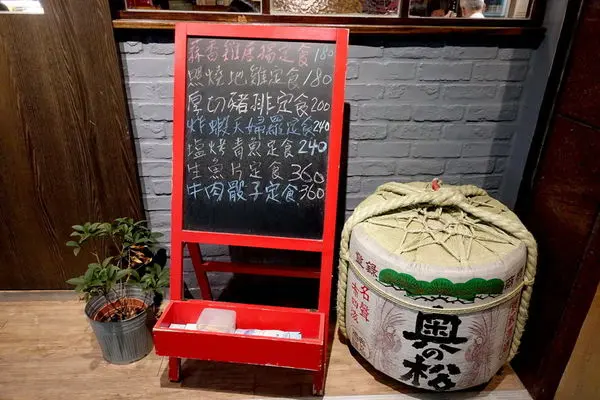 蒜香雞腿排定食 180
照燒地雞定食 180
厚切豬排定食 200
炸蝦天婦羅定食 240
塩烤青魚定食 240
生魚片定食 360
牛肉骰子定食 360
登録
名聲
奥の松